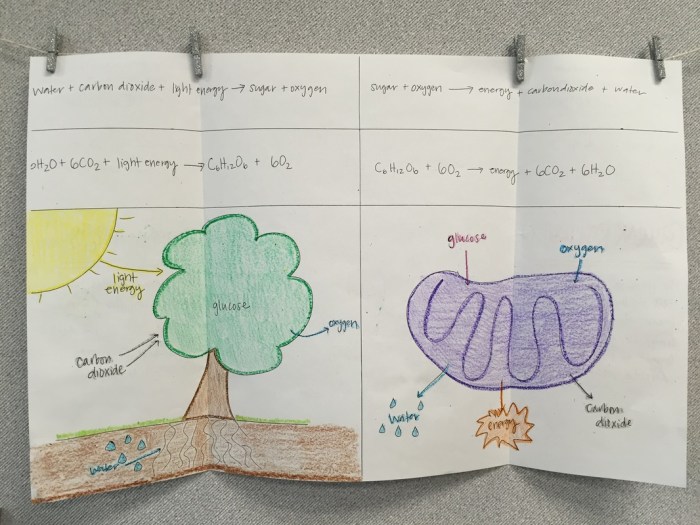 water + carbon dioxide + light energy → sugar + oxygen
sugar + oxygen → energy + carbon dioxide + water
H₂O + 6CO₂ + light energy → C₆H₁₂O₆ + 6O₂
C₆H₁₂O₆ + 6O₂ → energy + 6CO₂ + 6H₂O
light
energy
glucose
oxygen
carbon
dioxide
water
glucose
oxygen
water
energy
carbon
dioxide